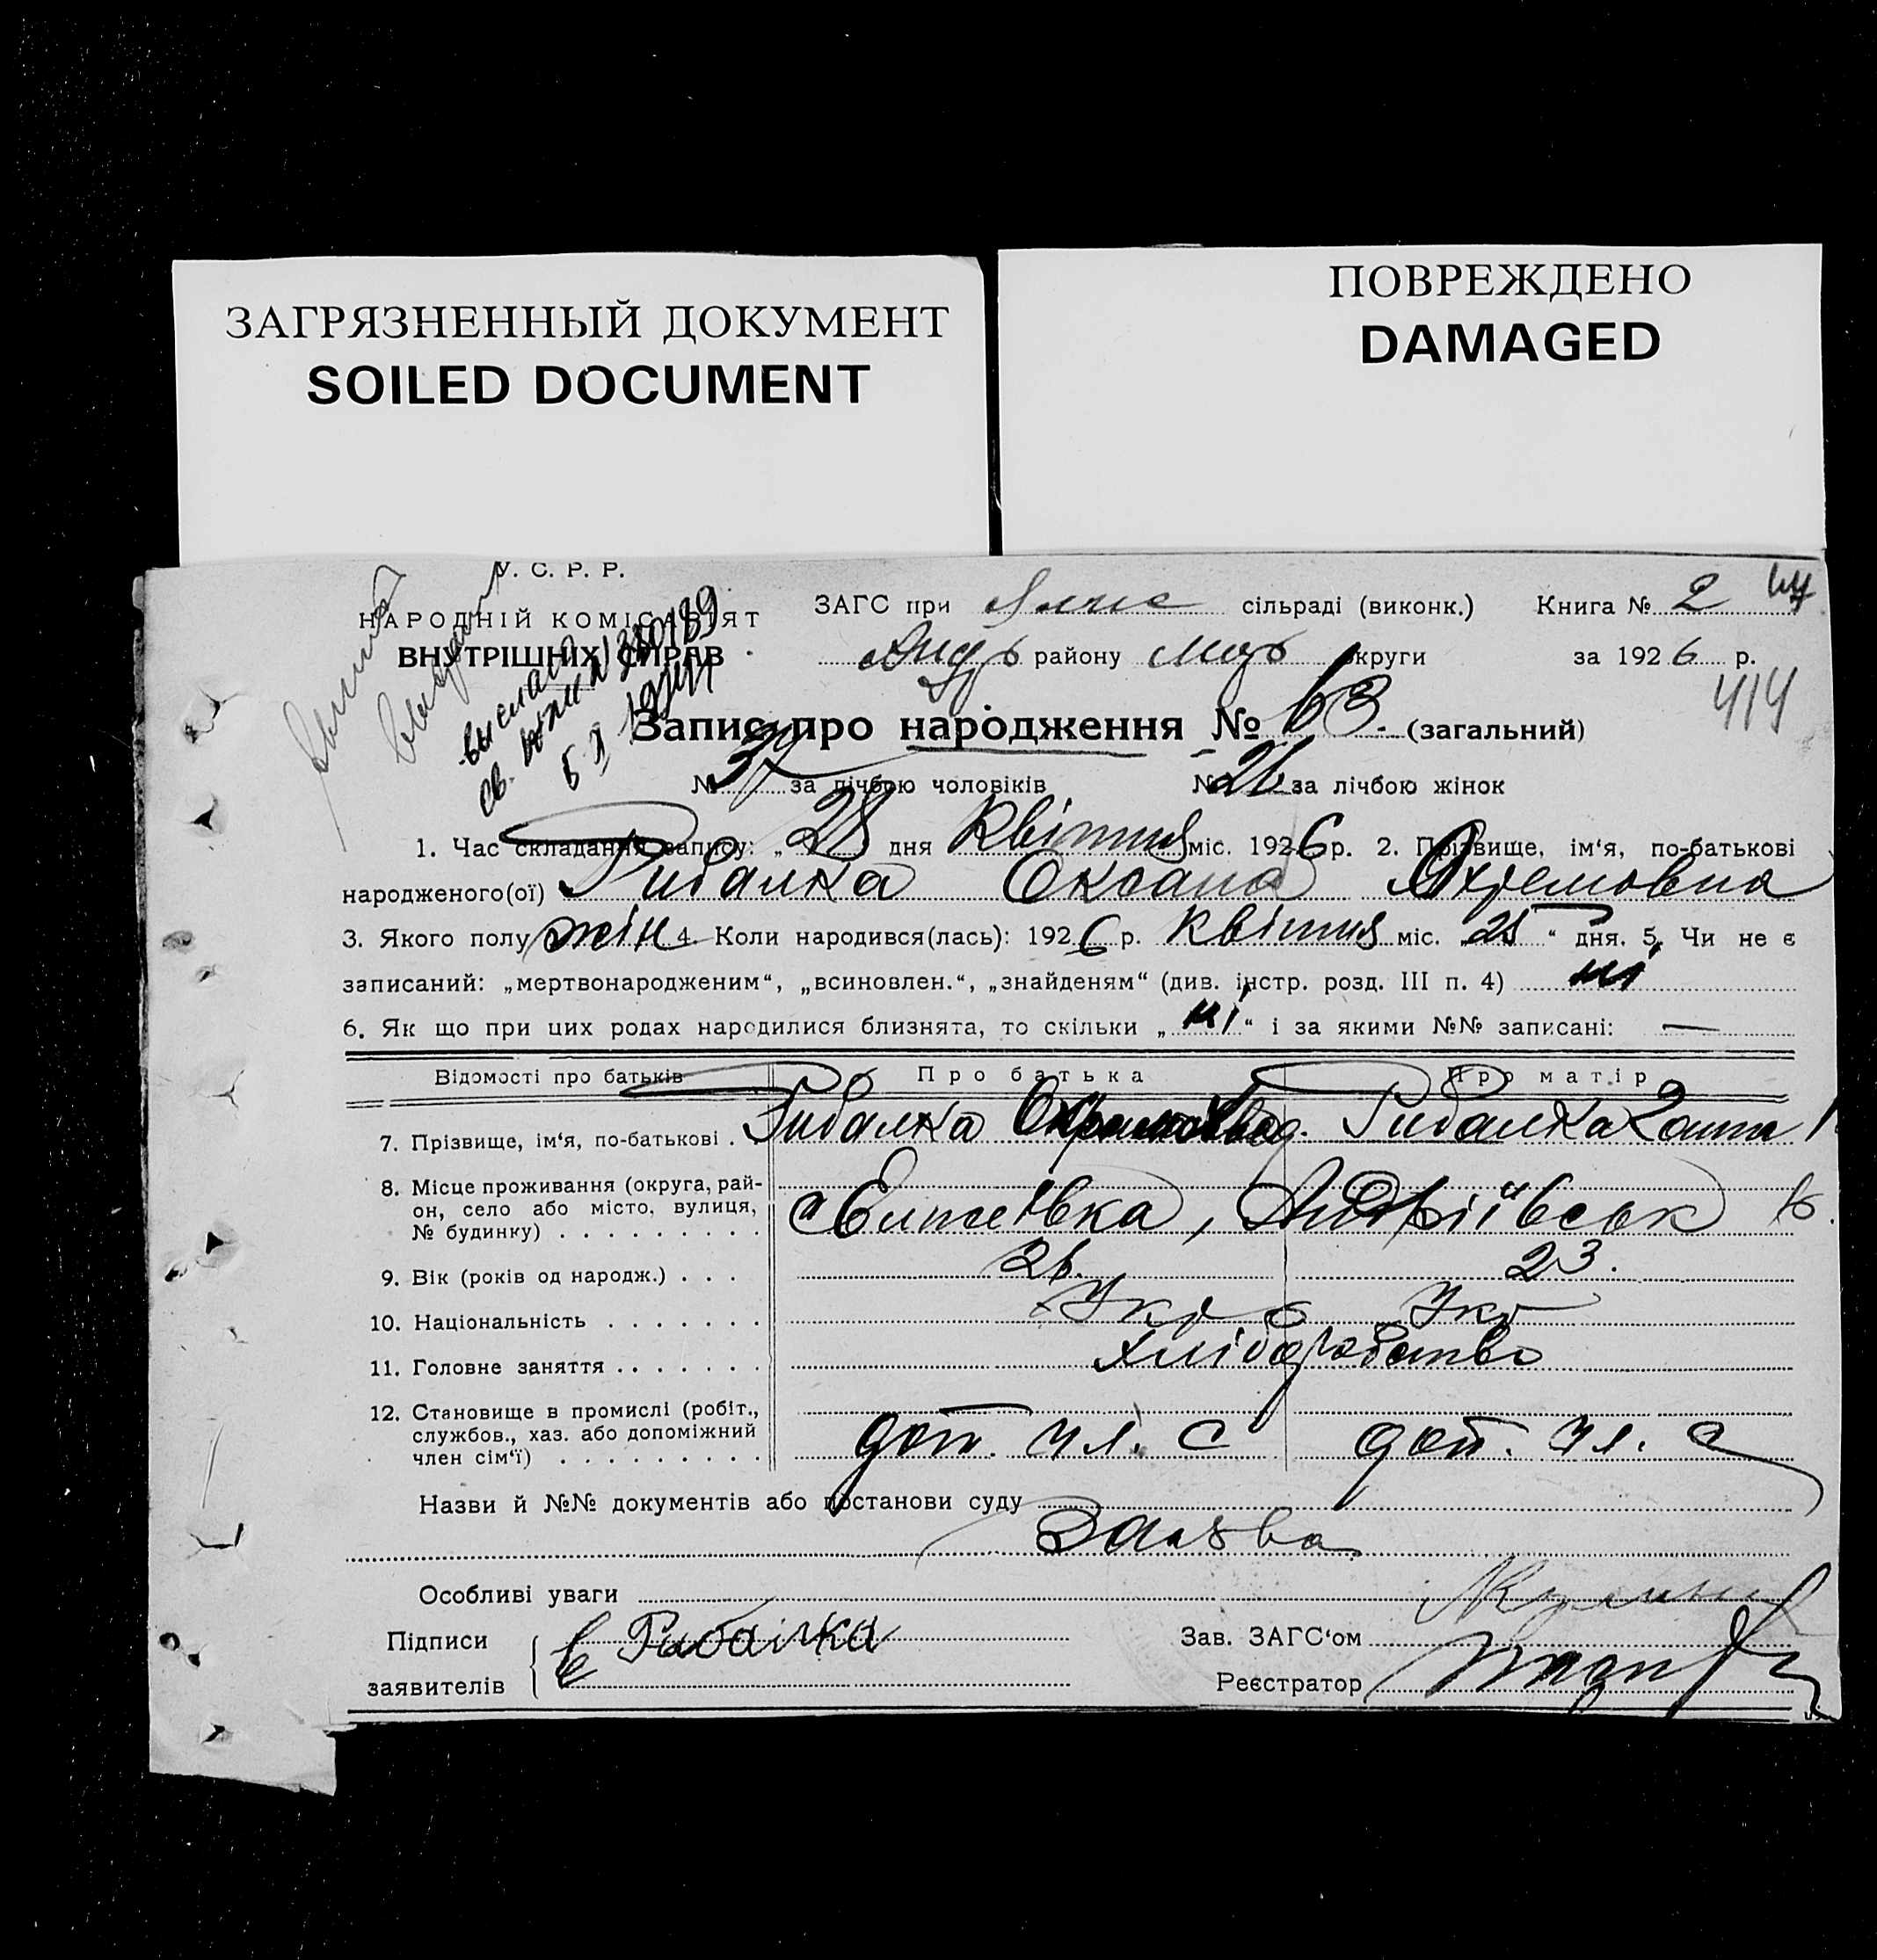 ЗАГРЯЗНЕННЫЙ ДОКУМЕНТ
SOILED DOCUMENT
ПОВРЕЖДЕНО
DAMAGED
У. С. Р. Р.
НАРОДНІЙ КОМІСАРІЯТ
ВНУТРІШНІХ СПРАВ
ЗАГС при сільраді (виконк.) Книга № 2
району округи за 1926 р.
414
Запис про народження № 63. (загальний)
№ 37 за лічбою чоловіків № 26 за лічбою жінок
1. Час складання запису: „28 дня Квітня міс. 1926 р. 2. Прізвище, ім‘я, по-батькові
народженого(ої) Рибалка Оксана Охремовна
3. Якого полу жін 4. Коли народився(лась): 1926 р. квітня міс. 25 “ дня. 5. Чи не є
записаний: „мертвонародженим“, „всиновлен.“, „знайденям“ (див. інстр. розд. III п. 4) ні
6. Як що при цих родах народилися близнята, то скільки „ ні “ і за якими №№ записані: —
Відомості про батьків Про батька Про матір
7. Прізвище, ім‘я, по-батькові . Рибалка Рибалка
8. Місце проживання (округа, рай-
он, село або місто, вулиця,
№ будинку) . . . . . . . . . Андріївськ
9. Вік (років од народж.) . . . 23.
10. Національність . . . . . . . Укр Укр
11. Головне заняття . . . . . . Хліборобство
12. Становище в промислі (робіт.,
службов., хаз. або допоміжний
член сім‘ї) . . . . . . . . . доп. чл. с доп. чл. с
Назви й №№ документів або постанови суду
Заява
Особливі уваги
Підписи
заявителів
Рибалка
Зав. ЗАГС‘ом
Реєстратор